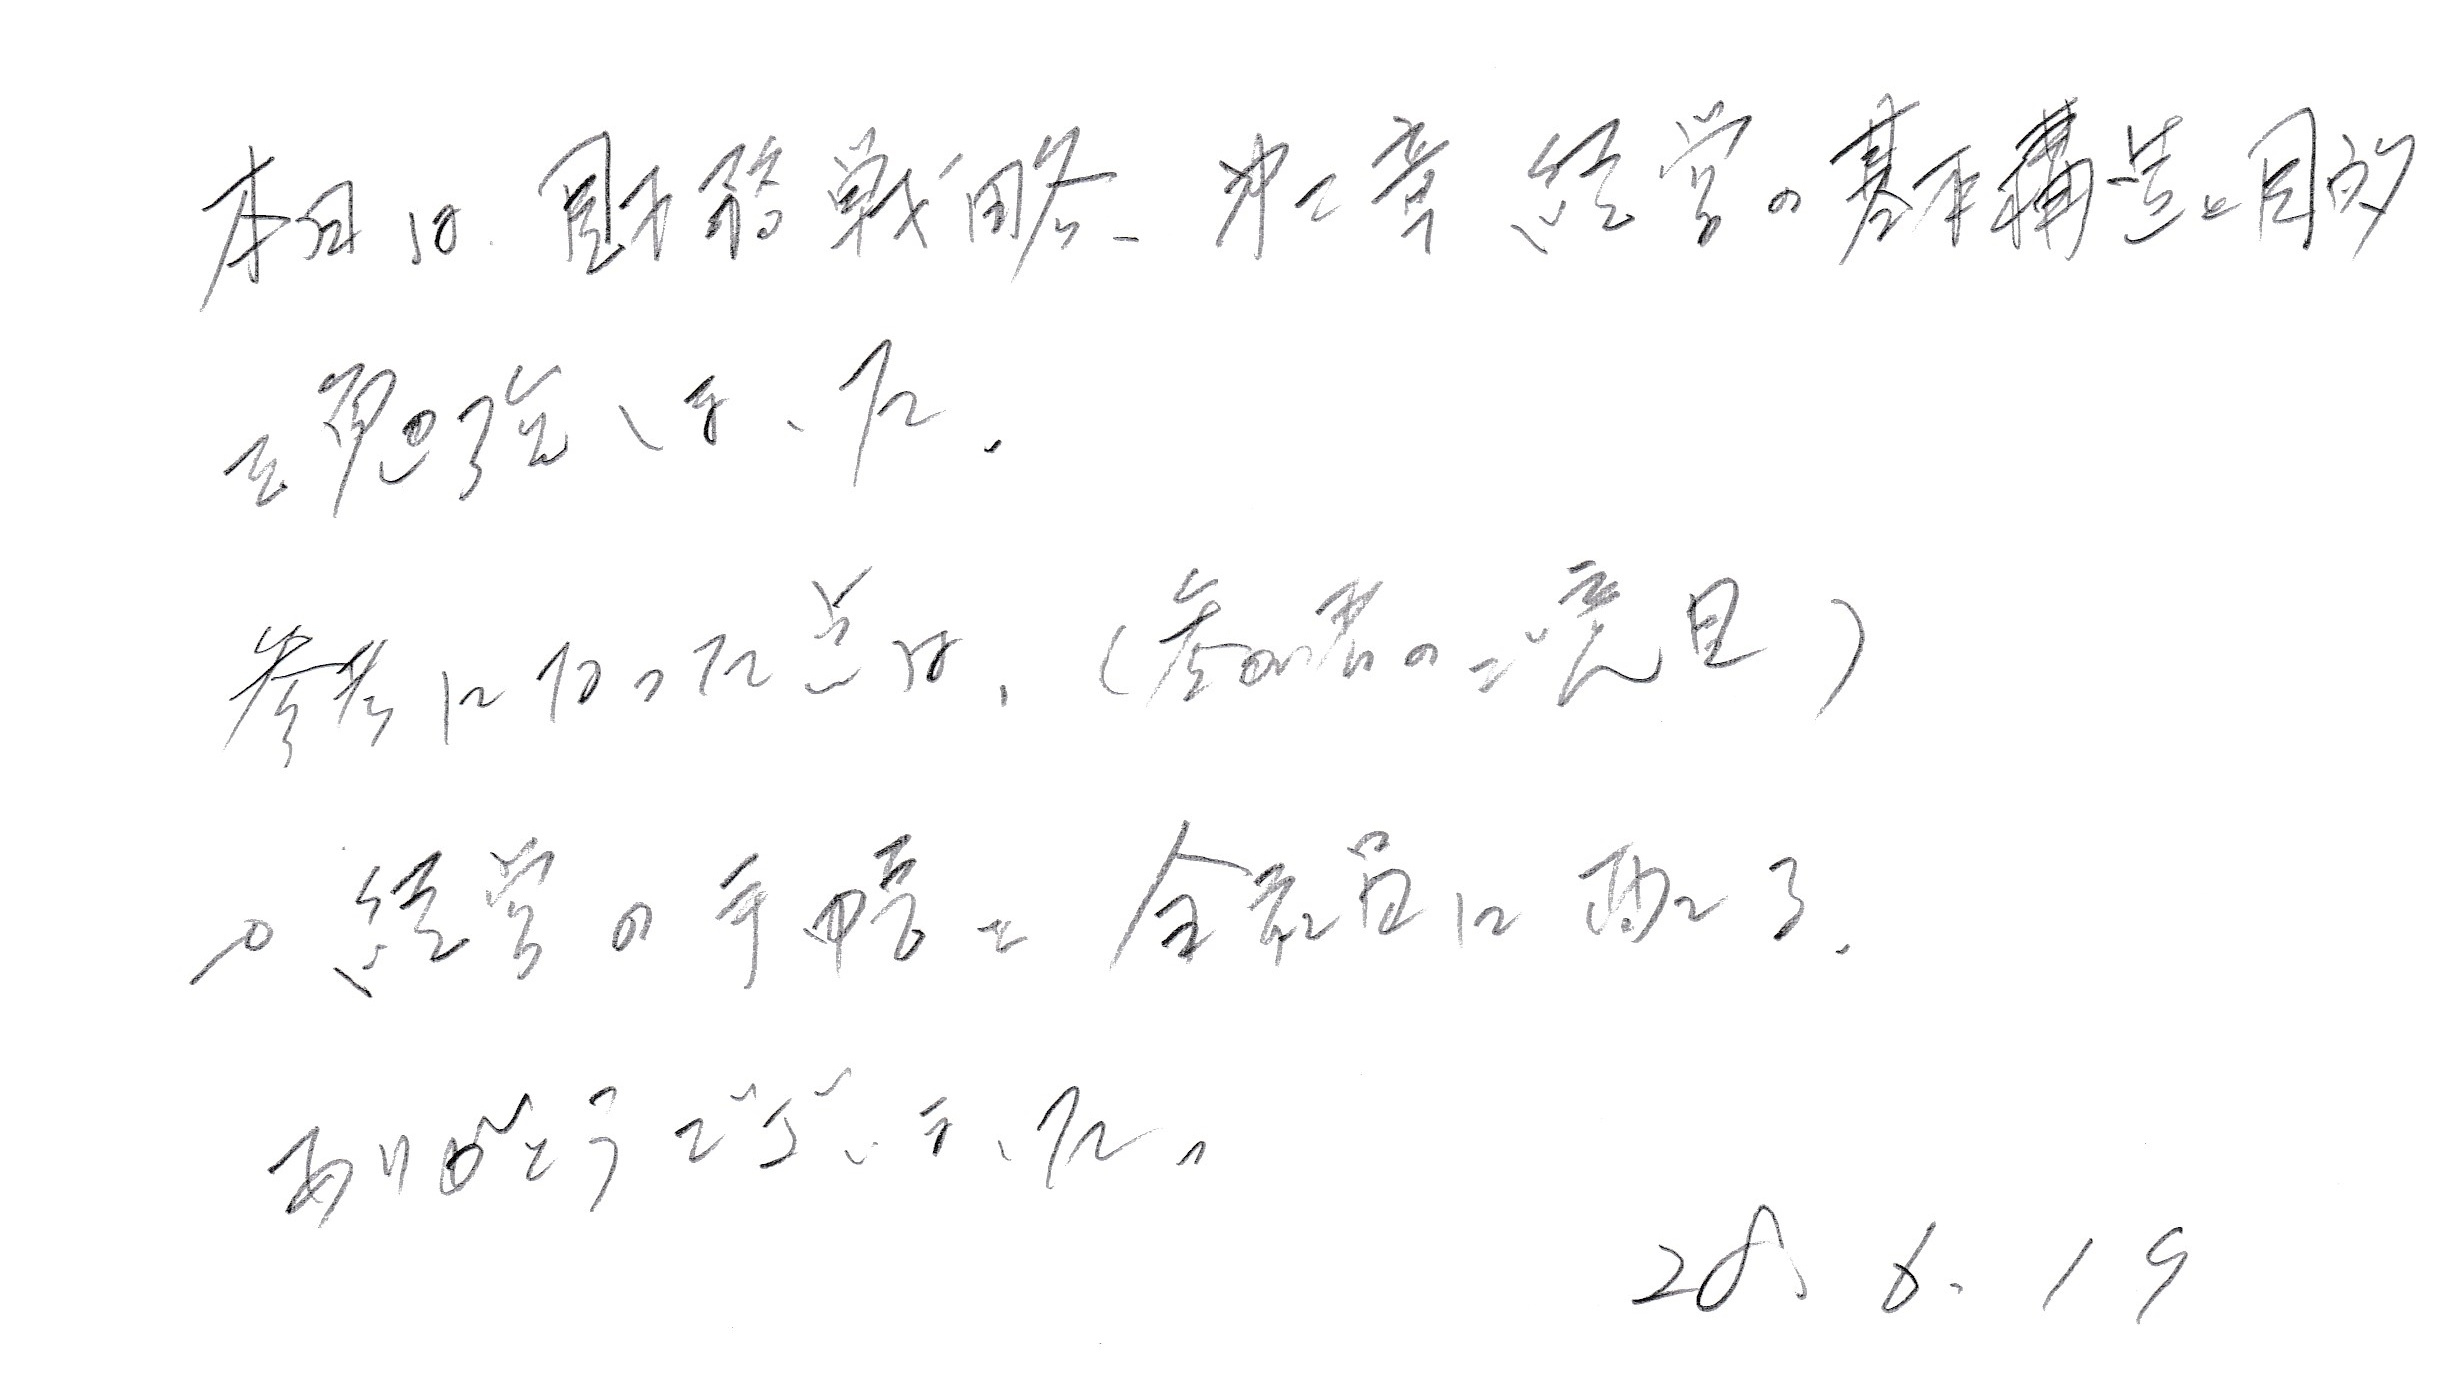 本日は、財務戦略、第二章 経営の基本構造と目的
を勉強しました。
参考になった点は、(参加者のご意見)
○経営の手帳を全社員に配る。
ありがとうございました。
28. 6. 19